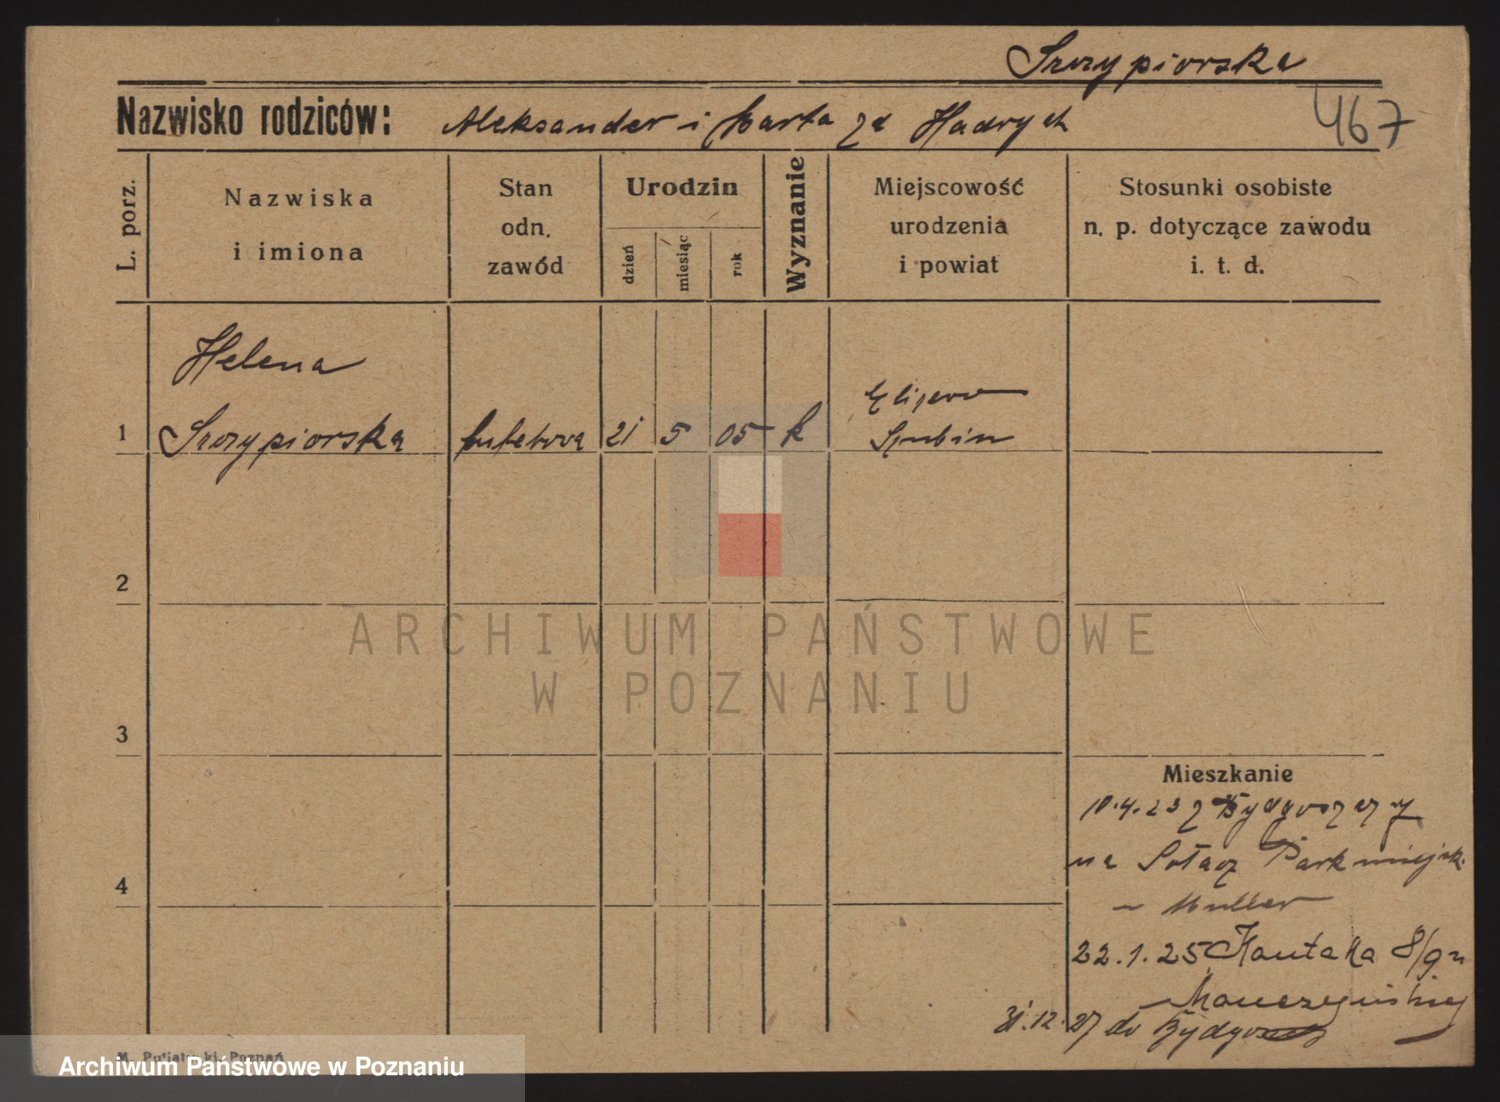 Szczypiorska
Nazwisko rodziców: Aleksander i Marta zd Hadrych
467
L. porz.
Nazwiska
i imiona
Stan
odn.
zawód
Urodzin
dzień
miesiąc
rok
Wyznanie
Miejscowość
urodzenia
i powiat
Stosunki osobiste
n. p. dotyczące zawodu
i. t. d.
Helena
1 Szczypiorska bufetowa 21 5 05 k
Szubin
2
ARCHIWUM PAŃSTWOWE
W POZNANIU
3
4
Mieszkanie
10.4.23 z Bydgoszczy
na Sołacz Park miejsk.
– Muller
22.1.25 Kantaka 8/9
31.12.27 do Bydgoszczy
Poznań
Archiwum Państwowe w Poznaniu